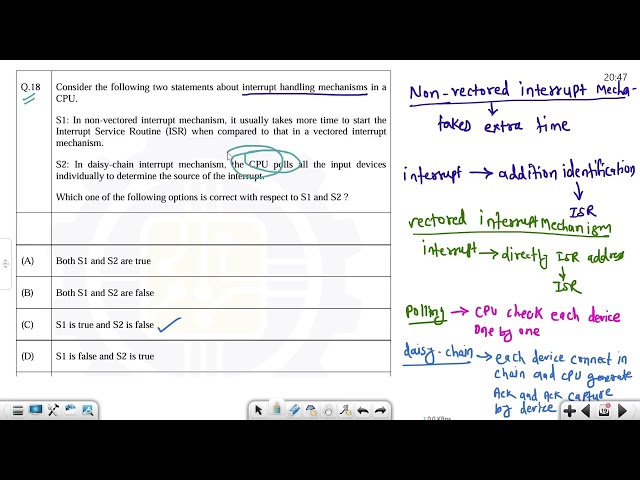 20:47
Q.18
Consider the following two statements about interrupt handling mechanisms in a
CPU.
S1: In non-vectored interrupt mechanism, it usually takes more time to start the
Interrupt Service Routine (ISR) when compared to that in a vectored interrupt
mechanism.
S2: In daisy-chain interrupt mechanism, the CPU polls all the input devices
individually to determine the source of the interrupt.
Which one of the following options is correct with respect to S1 and S2 ?
(A) Both S1 and S2 are true
(B) Both S1 and S2 are false
(C) S1 is true and S2 is false
(D) S1 is false and S2 is true
Non-vectored interrupt Mecha-
taked extra time
interrupt → addition identification
ISR
vectored interrupt Mechanism
interrupt → directly ISR address
ISR
Polling → CPU check each device
one by one
daisy-chain → each device connect in
chain and CPU generate
Ack and Ack capture
by device
19